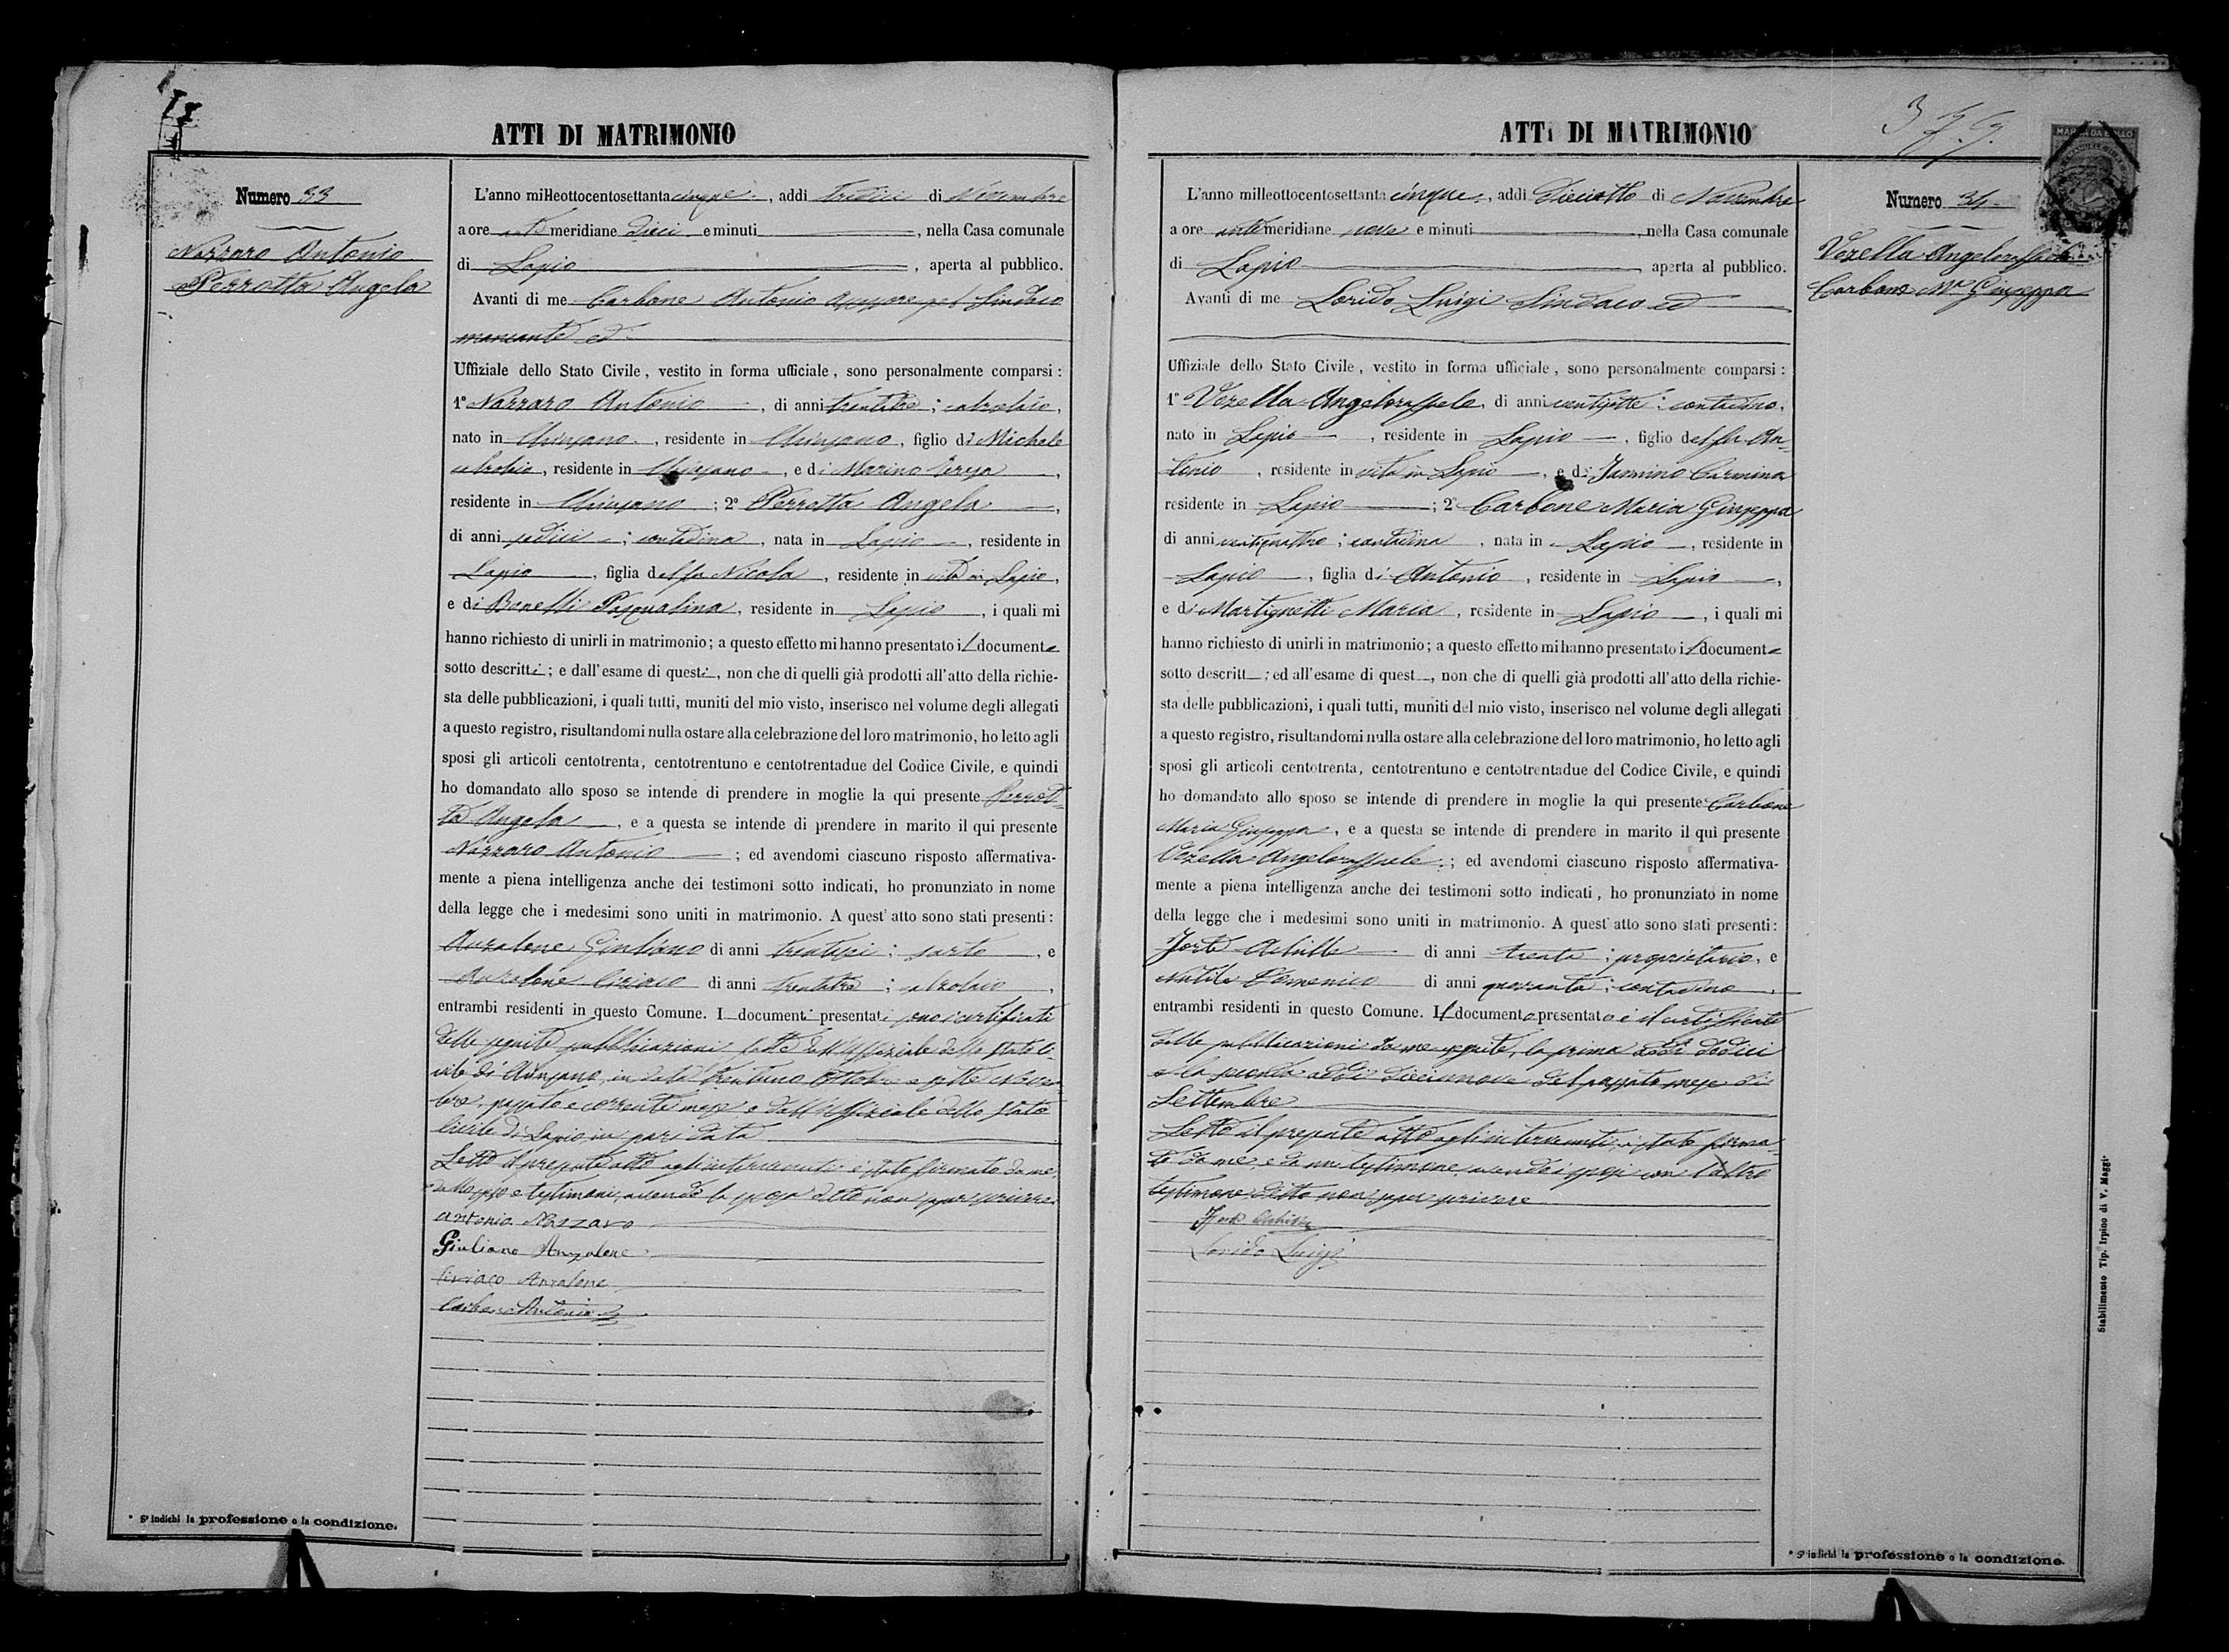 ATTI DI MATRIMONIO
Numero 33
Nazzaro Antonio
Perrotta Angela
L'anno milleottocentosettantacinque, addi tredici di Novembre
a ore ante meridiane dieci e minuti , nella Casa comunale
di Lapio , aperta al pubblico.
Avanti di me Carbone Antonio Assessore pel Sindaco
mancante ed
Uffiziale dello Stato Civile, vestito in forma ufficiale, sono personalmente comparsi:
1° Nazzaro Antonio , di anni trentatre; calzolaio,
nato in Chiusano , residente in Chiusano, figlio di Michele
calzolaio, residente in Chiusano , e di Marino Teresa ,
residente in Chiusano ; 2° Perrotta Angela ,
di anni sedici ; contadina , nata in Lapio , residente in
Lapio , figlia del fu Nicola , residente in vita in Lapio,
e di Pasqualina, residente in Lapio , i quali mi
hanno richiesto di unirli in matrimonio; a questo effetto mi hanno presentato i document
sotto descritti; e dall'esame di questi, non che di quelli già prodotti all'atto della richie-
sta delle pubblicazioni, i quali tutti, muniti del mio visto, inserisco nel volume degli allegati
a questo registro, risultandomi nulla ostare alla celebrazione del loro matrimonio, ho letto agli
sposi gli articoli centotrenta, centotrentuno e centotrentadue del Codice Civile, e quindi
ho domandato allo sposo se intende di prendere in moglie la qui presente Perrot-
ta Angela , e a questa se intende di prendere in marito il qui presente
Nazzaro Antonio ; ed avendomi ciascuno risposto affermativa-
mente a piena intelligenza anche dei testimoni sotto indicati, ho pronunziato in nome
della legge che i medesimi sono uniti in matrimonio. A quest'atto sono stati presenti:
Anzalone Giuliano di anni ; sarto , e
Anzalone Ciriaco di anni trentatre ; calzolaio ,
entrambi residenti in questo Comune. I documenti presentati sono i certificati
delle seguite pubblicazioni fatte dall'Uffiziale dello stato ci-
vile di Chiusano, in data trentuno Ottobre e sette Novem-
bre, passato e corrente mese e dall'Uffiziale dello stato
civile di Lapio in pari data
Letto il presente atto agli intervenuti è stato firmato da me,
dallo sposo e testimoni, avendo la sposa detto non saper scrivere.
Antonio Nazzaro
Giuliano Anzalone
Ciriaco Anzalone
Carbone Antonio
* Si indichi la professione o la condizione.
ATTI DI MATRIMONIO
MARCA DA BOLLO
Numero 34
Vozella Angeloraffaele
Carbone Ma Giuseppa
L'anno milleottocentosettantacinque, addi dieciotto di Novembre
a ore antemeridiane nove e minuti , nella Casa comunale
di Lapio aperta al pubblico.
Avanti di me Lorido Luigi Sindaco ed
Uffiziale dello Stato Civile, vestito in forma ufficiale, sono personalmente comparsi:
1° Vozella Angeloraffaele, di anni ventisette; contadino,
nato in Lapio , residente in Lapio , figlio del fu An-
tonio , residente in vita in Lapio , e di Carmina
residente in Lapio ; 2° Carbone Maria Giuseppa
di anni ventiquattro; contadina , nata in Lapio , residente in
Lapio , figlia di Antonio , residente in Lapio ,
e di Martignetti Maria , residente in Lapio , i quali mi
hanno richiesto di unirli in matrimonio; a questo effetto mi hanno presentato il document
sotto descritt ; ed all'esame di quest , non che di quelli già prodotti all'atto della richie-
sta delle pubblicazioni, i quali tutti, muniti del mio visto, inserisco nel volume degli allegati
a questo registro, risultandomi nulla ostare alla celebrazione del loro matrimonio, ho letto agli
sposi gli articoli centotrenta, centotrentuno e centotrentadue del Codice Civile, e quindi
ho domandato allo sposo se intende di prendere in moglie la qui presente Carbone
Maria Giuseppa, e a questa se intende di prendere in marito il qui presente
Vozella Angeloraffaele ; ed avendomi ciascuno risposto affermativa-
mente a piena intelligenza anche dei testimoni sotto indicati, ho pronunziato in nome
della legge che i medesimi sono uniti in matrimonio. A quest'atto sono stati presenti:
Forte Achille di anni trenta ; proprietario, e
Nutile Domenico di anni quaranta; contadino ,
entrambi residenti in questo Comune. Il documento presentato è il certificato
delle pubblicazioni da me seguite, la prima addi dodici
e la seconda addi diecinnove del passato mese di
Settembre
Letto il presente atto agli intervenuti, è stato firma-
to da me, e da un testimone, avendo i sposi con l'altro
testimone detto non saper scrivere
Forte Achille
Lorido Luigi
Stabilimento Tip. Irpino di V. Maggi
* Si indichi la professione o la condizione.